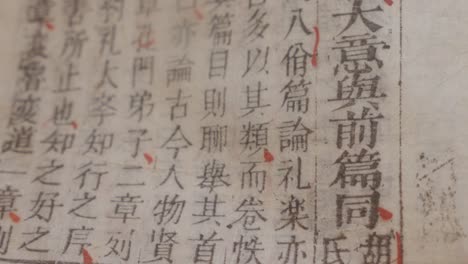 大意與前篇同
胡
氏
八佾篇論礼楽亦
多以其類而卷帙
篇目則聊舉其首
亦論古今人物賢
章孔門弟子二章列
孔大宰知行之序
所止也知之好之
魯変道一章